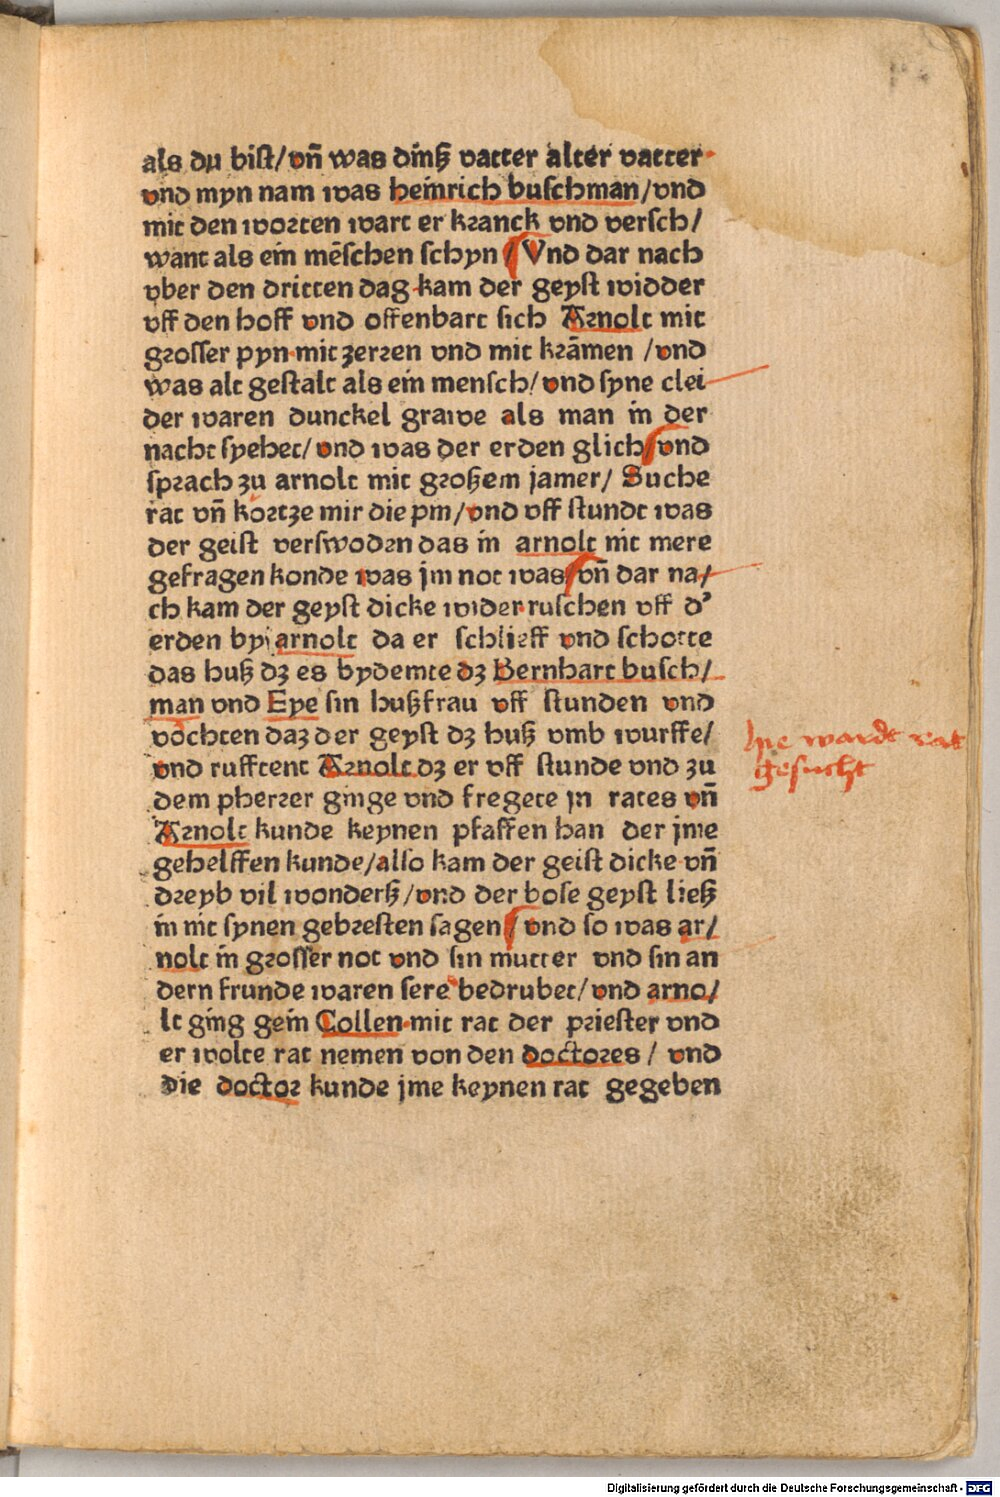 als du bist/vñ was dinß vatter alter vatter
vnd myn nam was heinrich buschman/vnd
mit den worten wart er kranck vnd versch/
want als ein mēschen schyn / Vnd dar nach
vber den dritten dag kam der geyst widder
vff den hoff vnd offenbart sich Arnolt mit
grosser pyn mit zerren vnd mit krāmen /vnd
was alt gestalt als ein mensch/vnd syne clei
der waren dunckel grawe als man in der
nacht syehet/ vnd was der erden glich/vnd
sprach zu arnolt mit großem jamer/ Suche
rat vñ kortze mir die pin/vnd vff stundt was
der geist verswoden das in arnolt nit mere
gefragen konde was jm not was/vñ dar na/
ch kam der geyst dicke wider ruschen vff d'
erden by arnolt da er schlieff vnd schotte
das huß dz es bydemte dz Bernhart busch/
man vnd Eye sin hußfrau vff stunden vnd
vochten daz der geyst dz huß vmb wurffe/
vnd rufftent Arnolt dz er vff stunde vnd zu
dem pherrer ginge vnd fregete jn rates vñ
Arnolt kunde keynen pfaffen han der jme
gehelffen kunde/also kam der geist dicke vñ
dreyb vil wonderß/vnd der bose geyst ließ
in nit synen gebresten sagen/ vnd so was ar/
nolt in grosser not vnd sin mutter vnd sin an
dern frunde waren sere bedrubet/vnd arno/
lt ging gein Collen mit rat der priester vnd
er wolte rat nemen von den doctores / vnd
die doctor kunde jme keynen rat gegeben
hie wardt rat
gesucht
Digitalisierung gefördert durch die Deutsche Forschungsgemeinschaft - DFG